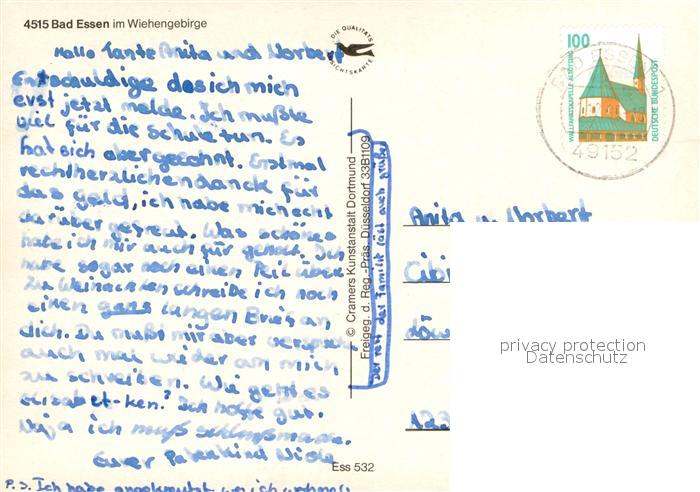 4515 Bad Essen im Wiehengebirge
DIE QUALITÄTS
ANSICHTSKARTE
Hallo Tante Anita und Norbert
Entschuldige dasich mich
erst jetzt melde. Ich mußte
viel für die Schule tun. Es
hat sich aber gelohnt. Erstmal
rechtherzlichendanck für
das geld, ich habe mich echt
darüber gefreut. Was schönes
habe ich mir auch für geholt. Ich
habe sogar noch einen Teil über
Zu Weihnachten schreibe ich noch
einen ganz langen Brief an
dich. Du mußt mir aber versprech
auch mal wider an mich
zu schreiben. Wie geht es
elisabet-ken? Ich hoffe gut.
Naja ich muß schlußmache.
Eurer Patenkind
P.S. Ich habe angekreutzt wo ich wohne
© Cramers Kunstanstalt Dortmund
Freigeg. d. Reg.-Präs. Düsseldorf 33B1109
Der rest der Familie läßt auch grüßen
Ess 532
100
WALLFAHRTSKAPELLE ALTÖTTING
DEUTSCHE BUNDESPOST
BAD ESSEN 1
49152
Anita u. Norbert
privacy protection
Datenschutz